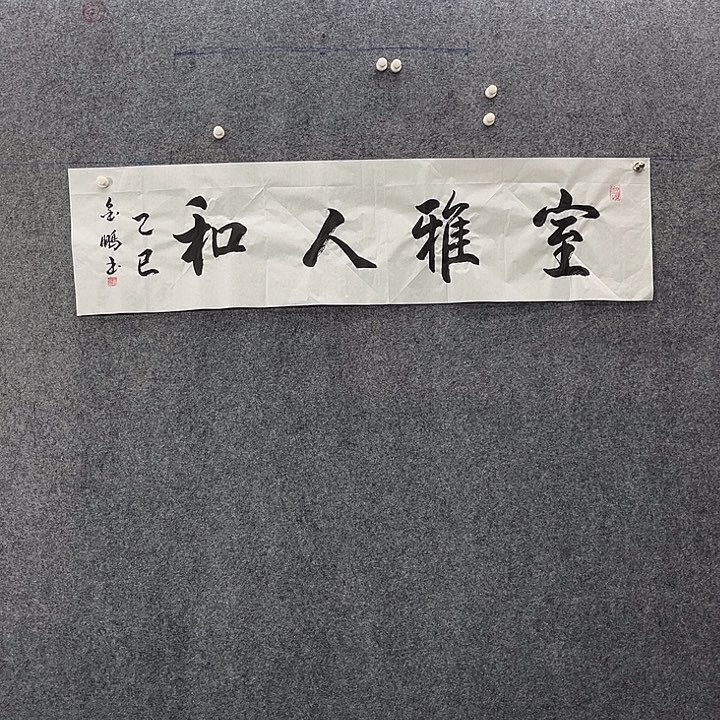 室雅人和
乙巳
金鹏书